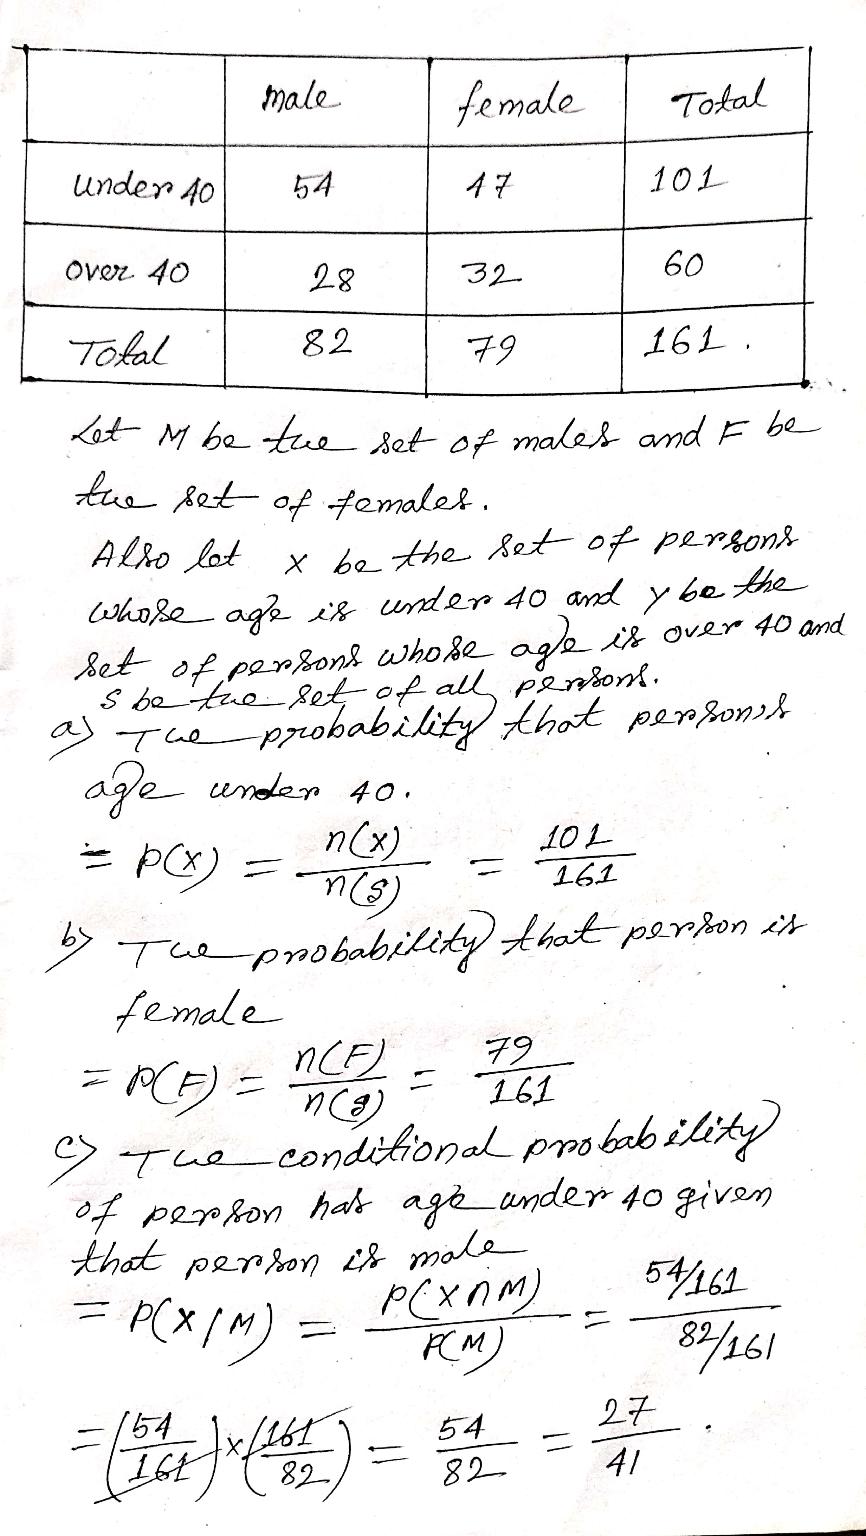 male female Total
under 40 54 47 101
over 40 28 32 60
Total 82 79 161.
Let M be the set of males and F be
the set of females.
Also let X be the set of persons
whose age is under 40 and y be the
set of persons whose age is over 40 and
S be the set of all persons.
a) The probability that person's
age under 40.
= P(X) = n(X)/n(S) = 101/161
b) The probability that person is
female
= P(F) = n(F)/n(S) = 79/161
c) The conditional probability
of person has age under 40 given
that person is male
= P(X/M) = P(X∩M)/P(M) = (54/161)/(82/161)
= (54/161) × (161/82) = 54/82 = 27/41.